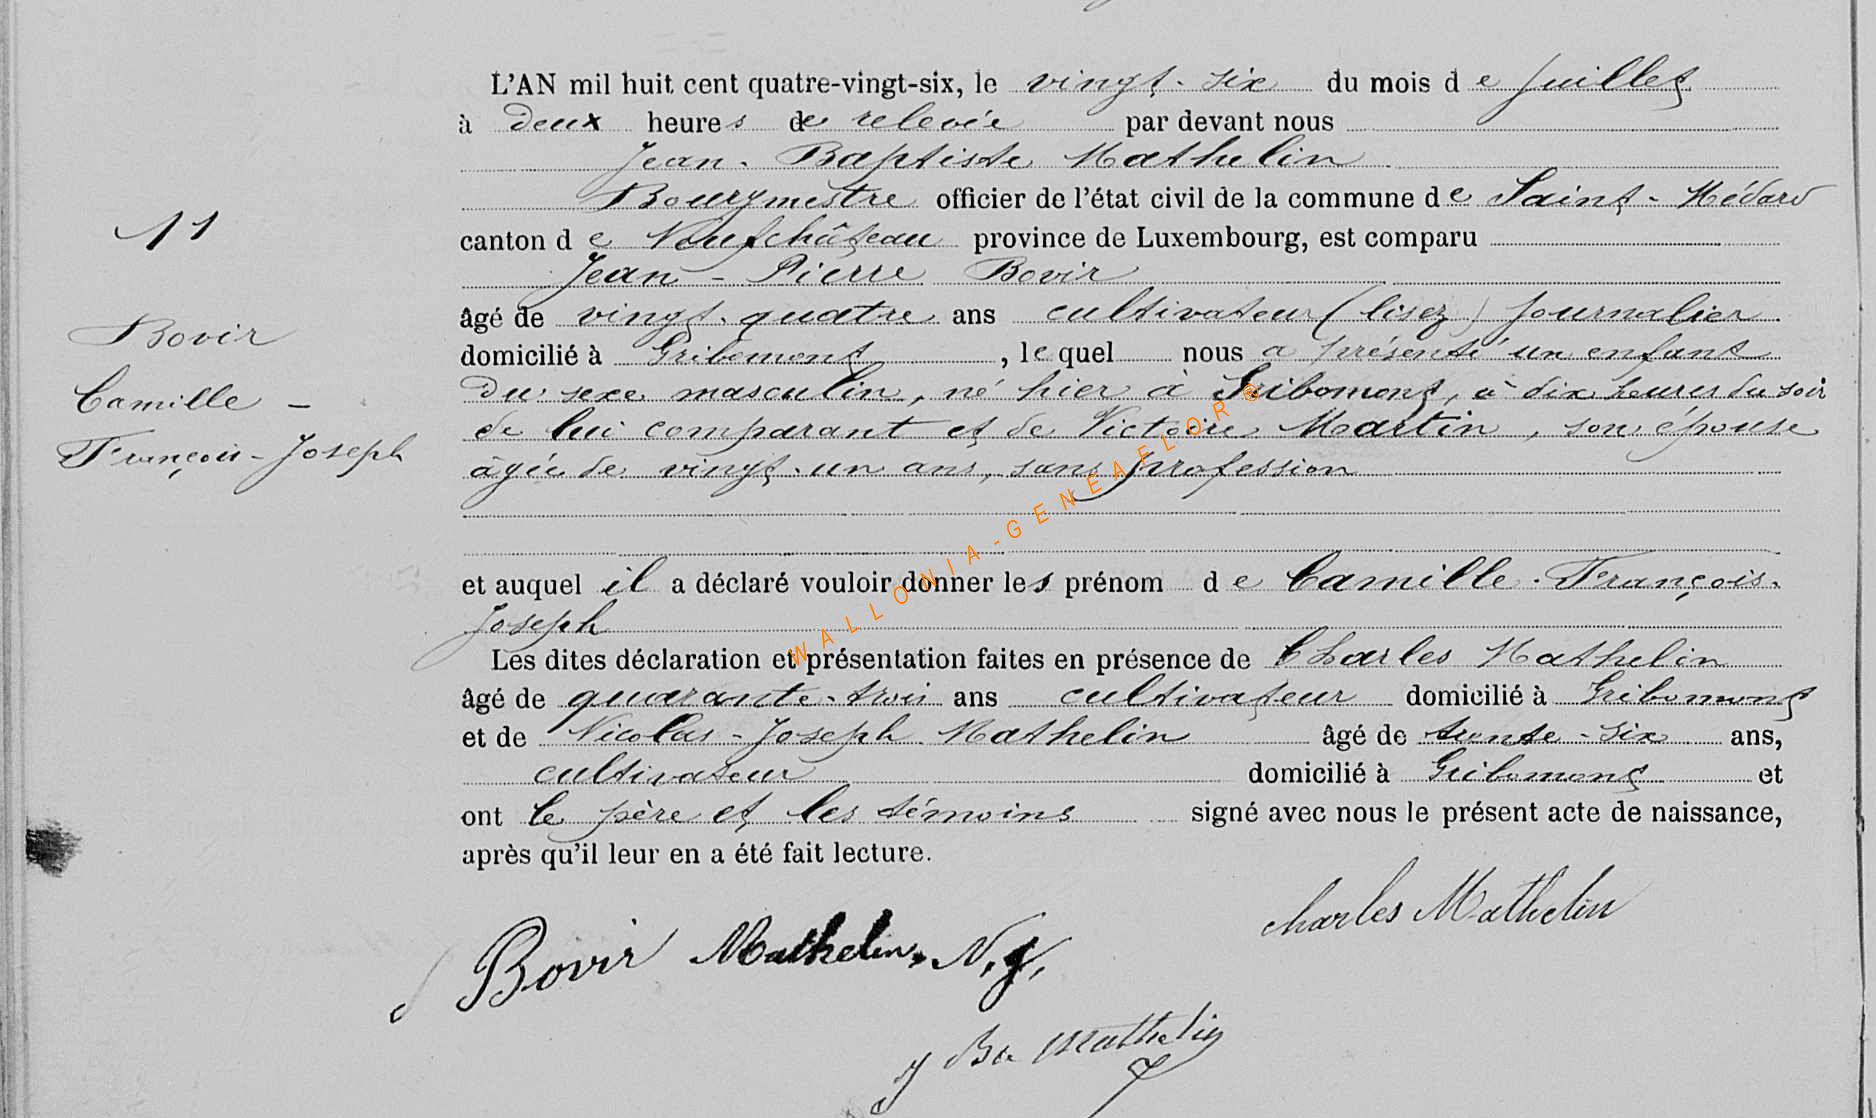 L'AN mil huit cent quatre-vingt-six, le vingt-six du mois de Juillet
à deux heures de relevée par devant nous
Jean-Baptiste Mathelin
Bourgmestre officier de l'état civil de la commune de Saint-Médard
canton de Neufchâteau province de Luxembourg, est comparu
Jean-Pierre Bovir
âgé de vingt-quatre ans cultivateur (lisez) journalier
domicilié à Gribomont, lequel nous a présenté un enfant
du sexe masculin, né hier à Gribomont, à dix heures du soir
de lui comparant et de Victoire Martin, son épouse
âgée de vingt-un ans, sans profession
et auquel il a déclaré vouloir donner les prénom de Camille-François-
Joseph
Les dites déclaration et présentation faites en présence de Charles Mathelin
âgé de quarante-trois ans cultivateur domicilié à Gribomont
et de Nicolas-Joseph Mathelin âgé de trente-six ans,
cultivateur domicilié à Gribomont et
ont le père et les témoins signé avec nous le présent acte de naissance,
après qu'il leur en a été fait lecture.
11
Bovir
Camille-
François-Joseph
Charles Mathelin
J Bovir Mathelin, N. J.
J Bte Mathelin
WALLONIA-GENEAFLOR®